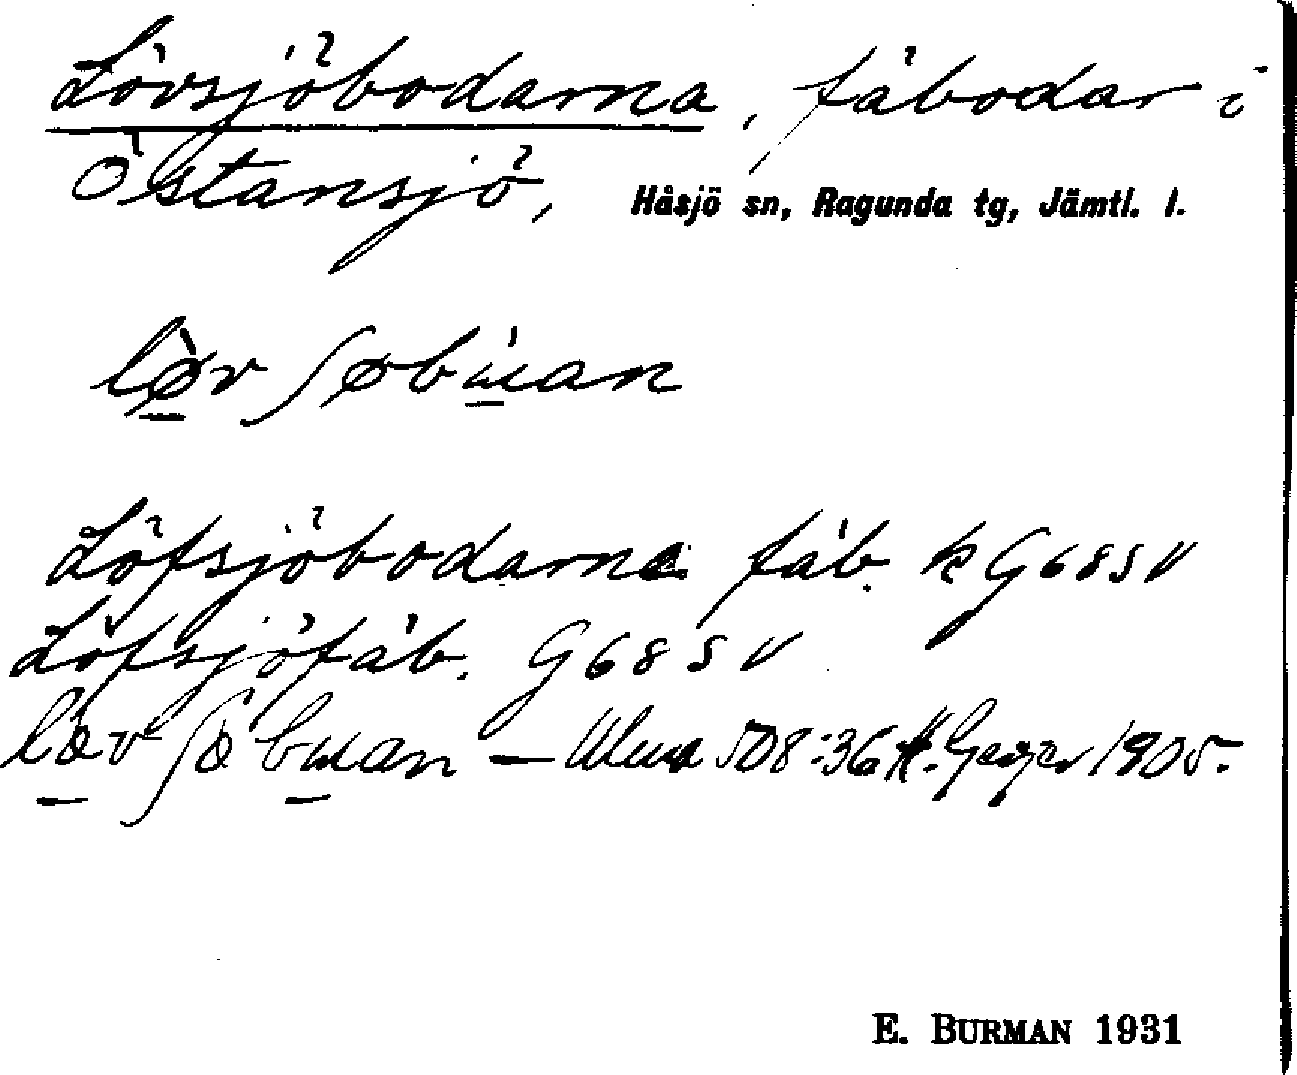 Lövsjöbodarna, fäbodar i
Östansjö, Håsjö sn, Ragunda tg, Jämtl. l.
lø̀v ʃøbɯ́an
Löfsjöbodarna fäb. k G68SV
Löfsjöfäb. G68SV
løv ʃøbɯan — Ulma 508:36 H. Geijer 1905.
E. BURMAN 1931